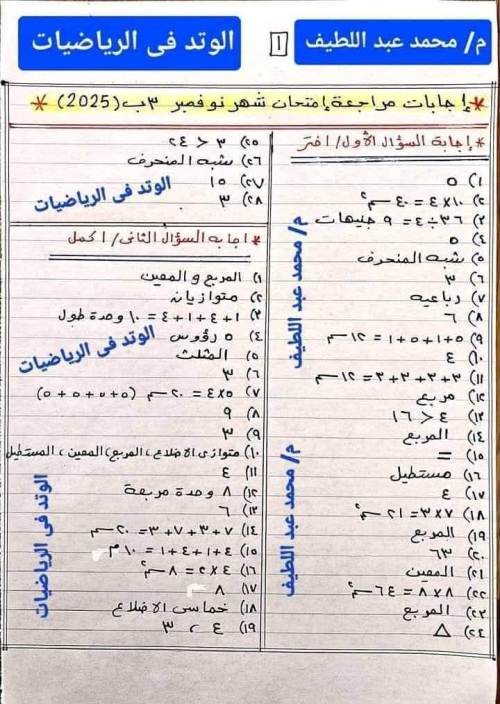 م/ محمد عبد اللطيف
١
الوتد فى الرياضيات
* إجابات مراجعة إمتحان شهر نوفمبر ٣ب (2025) *
* إجابة السؤال الأول/ اختر
١) ٥
٢) ١٠ × ٤ = ٤٠ سم٢
٣) ٣٦ ÷ ٤ = ٩ جنيهات
٤) ٥
٥) شبه المنحرف
٦) ٣
٧) رباعيه
٨) ٦
٩) ٥ + ١ + ٥ + ١ = ١٢ سم
١٠) ٤
١١) ٣ + ٣ + ٣ + ٣ = ١٢ سم
١٢) مربع
١٣) ٤ > ١٦
١٤) المربع
١٥) =
١٦) مستطيل
١٧) ٤
١٨) ٧ × ٣ = ٢١ سم٢
١٩) المربع
٢٠) ٦٣
٢١) المعين
٢٢) ٨ × ٨ = ٦٤ سم٢
٢٣) المربع
٢٤) △
م/ محمد عبد اللطيف
م/ محمد عبد اللطيف
٢٥) ٣ > ٢٤
٢٦) شبه المنحرف
٢٧) ١٥
٢٨) ٣
الوتد فى الرياضيات
* اجابه السؤال الثانى/ اكمل
١) المربع و المعين
٢) متوازيان
٣) ١ + ٤ + ١ + ٤ = ١٠ وحدة طول
٤) ٥ رؤوس
الوتد فى الرياضيات
٥) المثلث
٦) ٣
٧) ٥ × ٤ = ٢٠ سم (٥ + ٥ + ٥ + ٥)
٨) ٩
٩) ٣
١٠) متوازى الاضلاع، المربع، المعين، المستطيل
١١) ٤
١٢) ٨ وحدة مربعة
١٣) ٦
١٤) ٧ + ٣ + ٧ + ٣ = ٢٠ سم
١٥) ٤ + ١ + ٤ + ١ = ١٠ م
١٦) ٤ × ٢ = ٨ سم٢
١٧) ٨
١٨) خماسى الاضلاع
١٩) ٤ ، ٣
الوتد فى الرياضيات